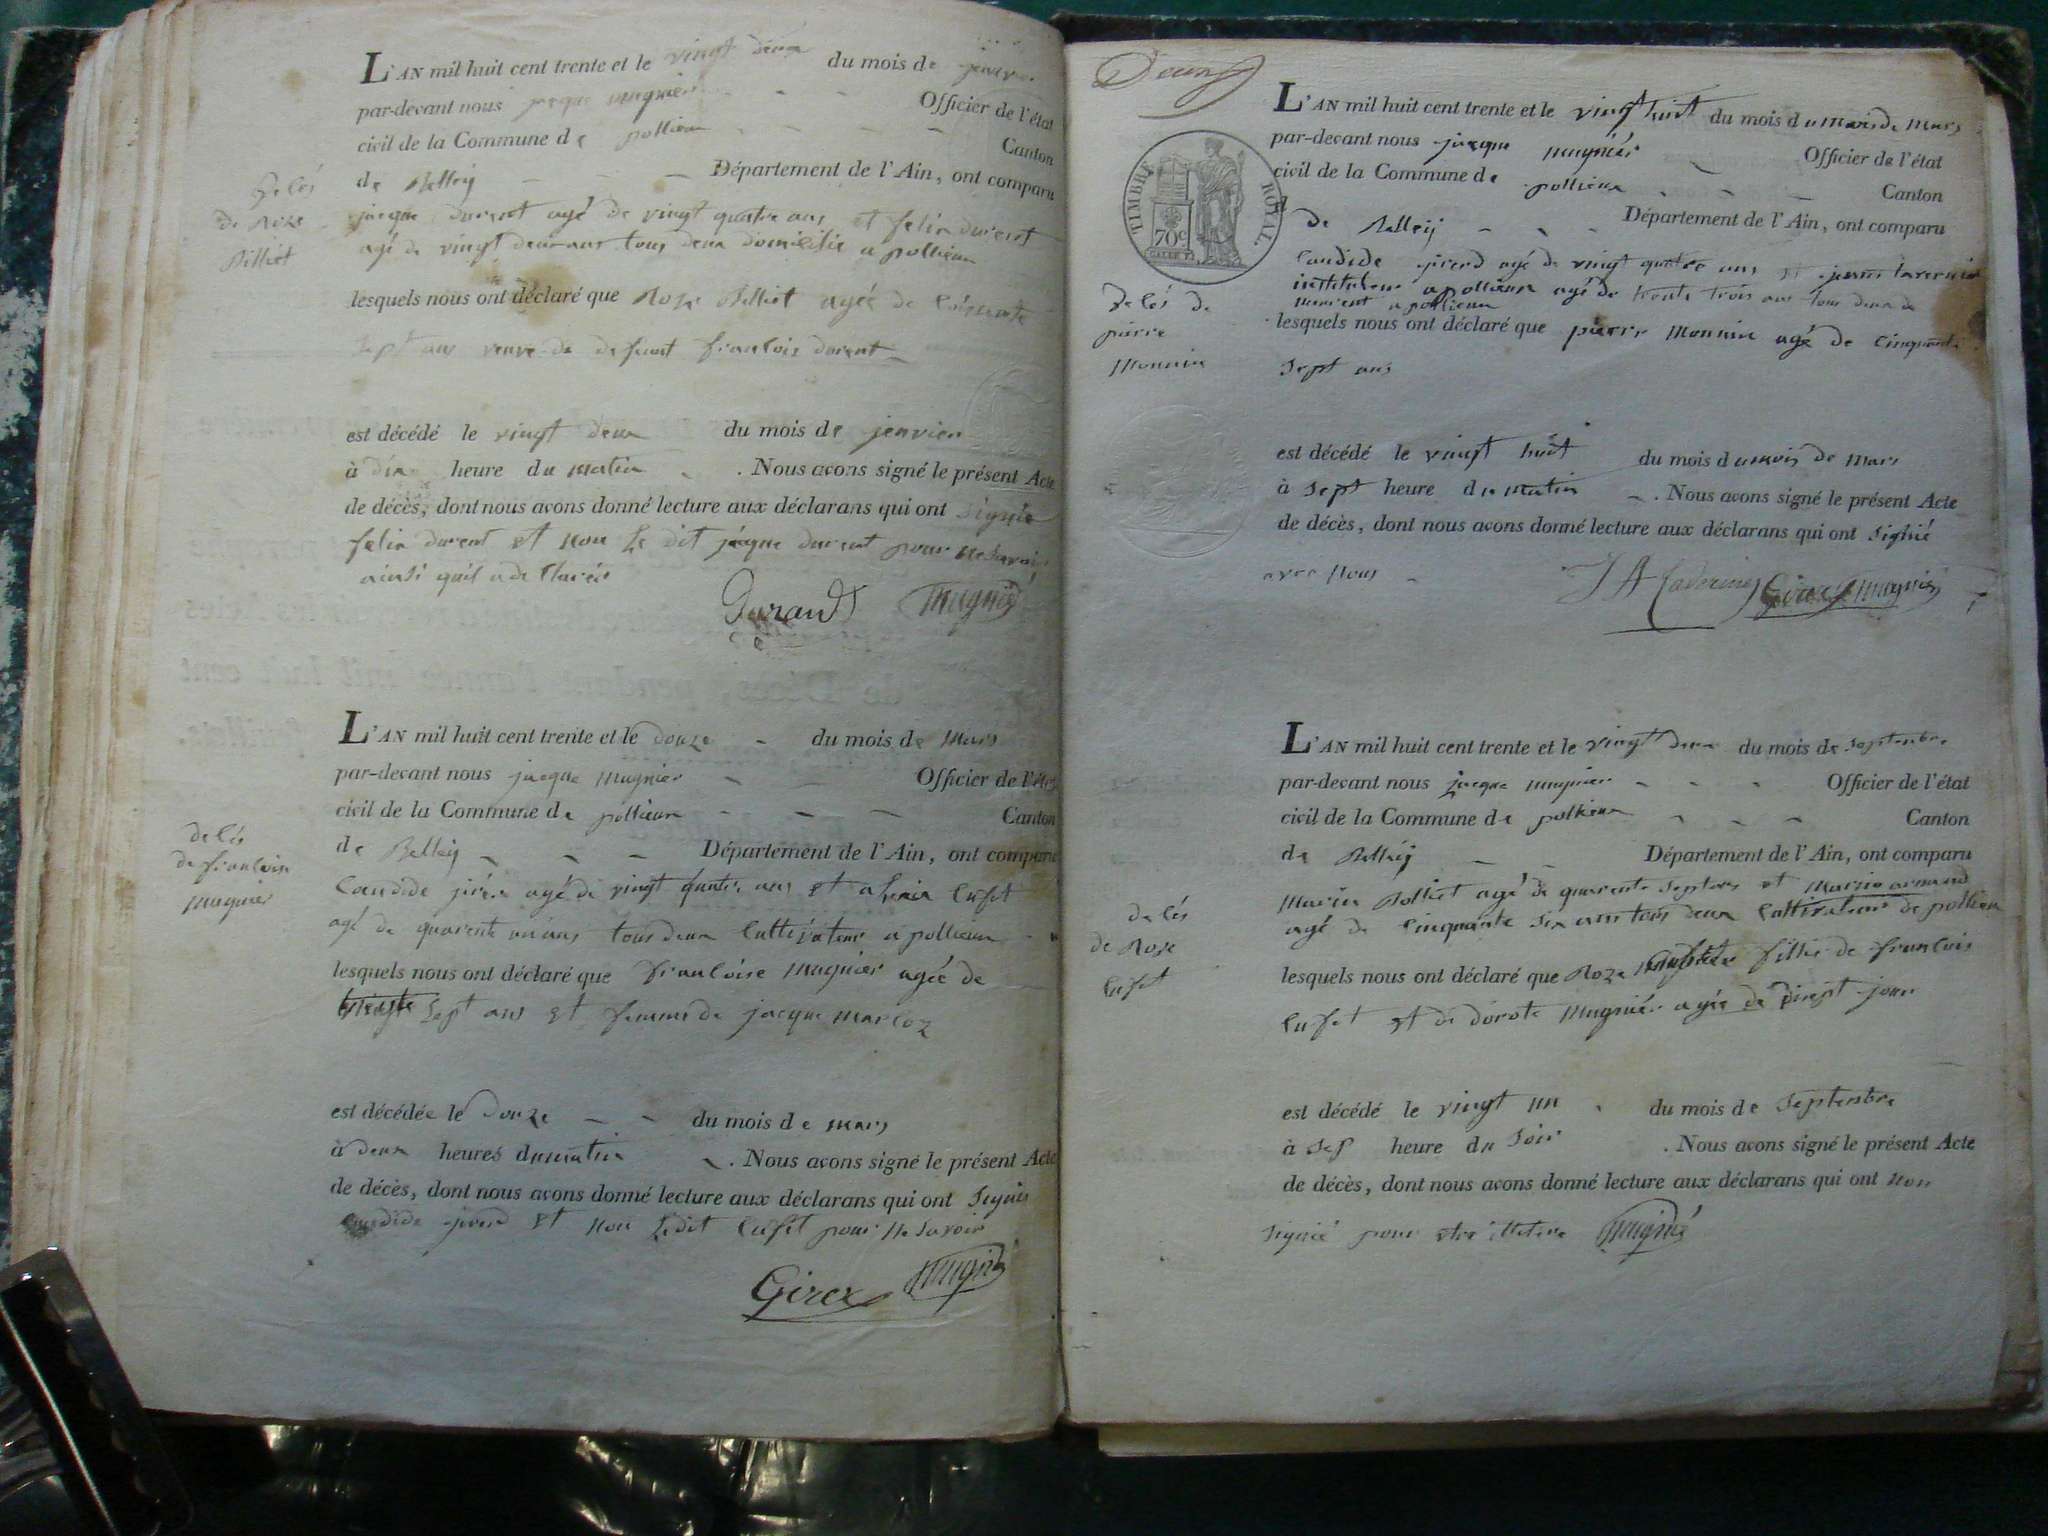 L'AN mil huit cent trente et le vingt deux du mois de
par-devant nous jacque mugnier Officier de l'état
civil de la Commune de pollieux Canton
de Belley Département de l'Ain, ont comparu
jacque durent agé de vingt quatre ans et felix durent
agé de vingt deux ans tous deux domicilié a pollieux
lesquels nous ont déclaré que Roze Billiet agée de
sept ans veuve de defunt francois durent
de Roze
Billiet
est décédé le vingt deux du mois de jenvier
à dix heure du matin . Nous avons signé le présent Acte
de décès, dont nous avons donné lecture aux déclarans qui ont signié
felix durent et non le dit jacque durent pour ne savoir
ainsi quil a declaréz
Durand mugnié
L'AN mil huit cent trente et le douze du mois de mars
par-devant nous jacque mugnier Officier de l'état
civil de la Commune de pollieux Canton
de Belley Département de l'Ain, ont comparu
Candide agé de vingt quatre ans et cufet
agé de quarente ans tous deux cultivateur a pollieux
lesquels nous ont déclaré que francoise mugnier agée de
sept ans et femme de jacque marcoz
decés
de francoise
mugnier
est décédée le douze du mois de mars
à deux heures du matin . Nous avons signé le présent Acte
de décès, dont nous avons donné lecture aux déclarans qui ont signié
candide et non ledit cufet pour ne savoir
Girex mugnié
TIMBRE ROYAL
70c
L'AN mil huit cent trente et le vingt huit du mois du mois de mars
par-devant nous jacque mugnier Officier de l'état
civil de la Commune de pollieux Canton
de Belley Département de l'Ain, ont comparu
Candide agé de vingt quatre ans et
instituteur a pollieux agé de trente trois ans tous deux
a pollieux
lesquels nous ont déclaré que pierre monnin agé de cinquante
sept ans
decés de
pierre
monnin
est décédé le vingt huit du mois du mois de mars
à sept heure du matin . Nous avons signé le présent Acte
de décès, dont nous avons donné lecture aux déclarans qui ont signié
avec nous
Girex mugnié
L'AN mil huit cent trente et le vingt deux du mois de septembre
par-devant nous jacque mugnier Officier de l'état
civil de la Commune de pollieux Canton
de Belley Département de l'Ain, ont comparu
agé de quarente sept ans et armand
agé de cinquante six ans tous deux cultivateur de pollieux
lesquels nous ont déclaré que Roze fillie de francois
cufet et de dorote mugnier agée de jour
decés
de Roze
cufet
est décédé le vingt un du mois de septembre
à sep heure du soir . Nous avons signé le présent Acte
de décès, dont nous avons donné lecture aux déclarans qui ont non
signié pour etre mugnié